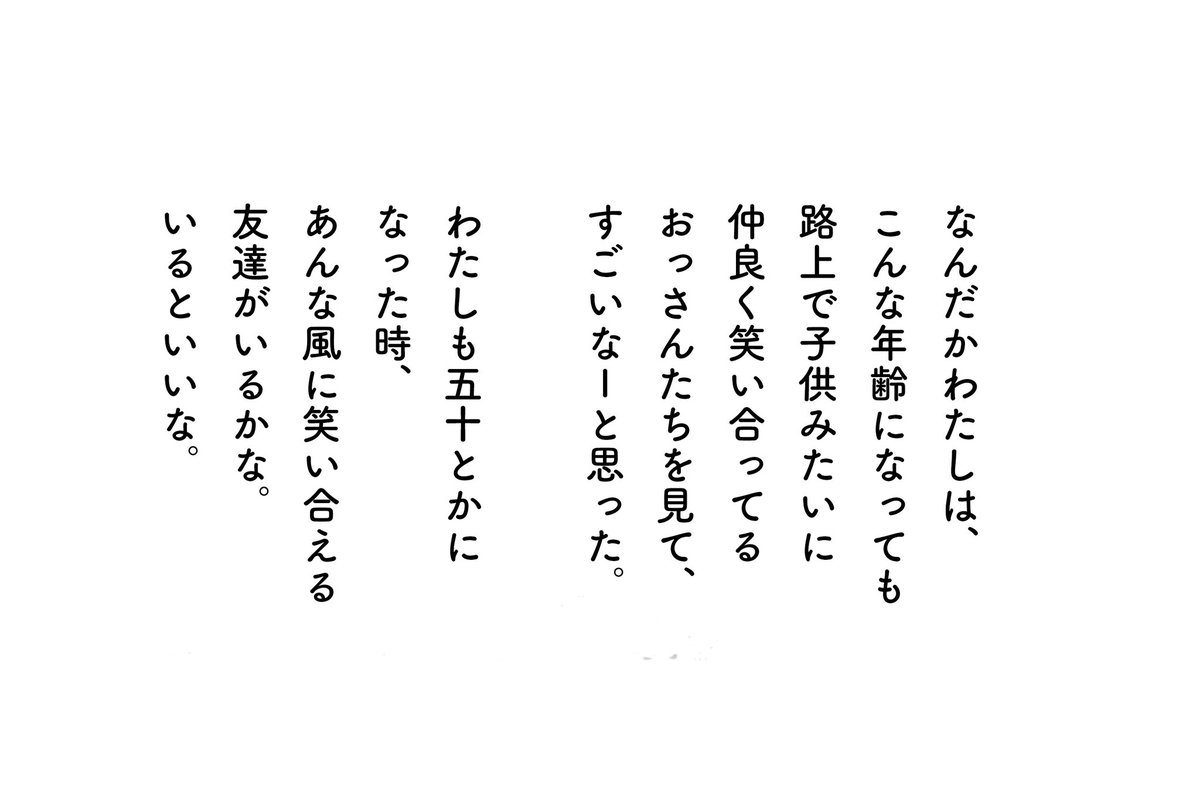 なんだかわたしは、
こんな年齢になっても
路上で子供みたいに
仲良く笑い合ってる
おっさんたちを見て、
すごいなーと思った。
わたしも五十とかに
なった時、
あんな風に笑い合える
友達がいるかな。
いるといいな。